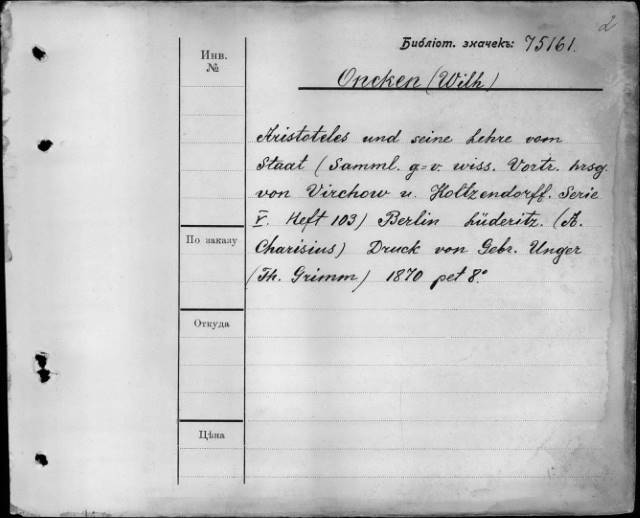 2
Библіот. значекъ: 75161.
Инв.
№
Oncken (Wilh)
Aristoteles und seine Lehre vom
Staat (Samml. g=v. wiss. Vortr. hrsg.
von Virchow u. Holtzendorff. Serie
V. Heft 103) Berlin Lüderitz. (A.
Charisius) Druck von Gebr. Unger
(Th. Grimm) 1870 pet 8°
По заказу
Откуда
Цѣна